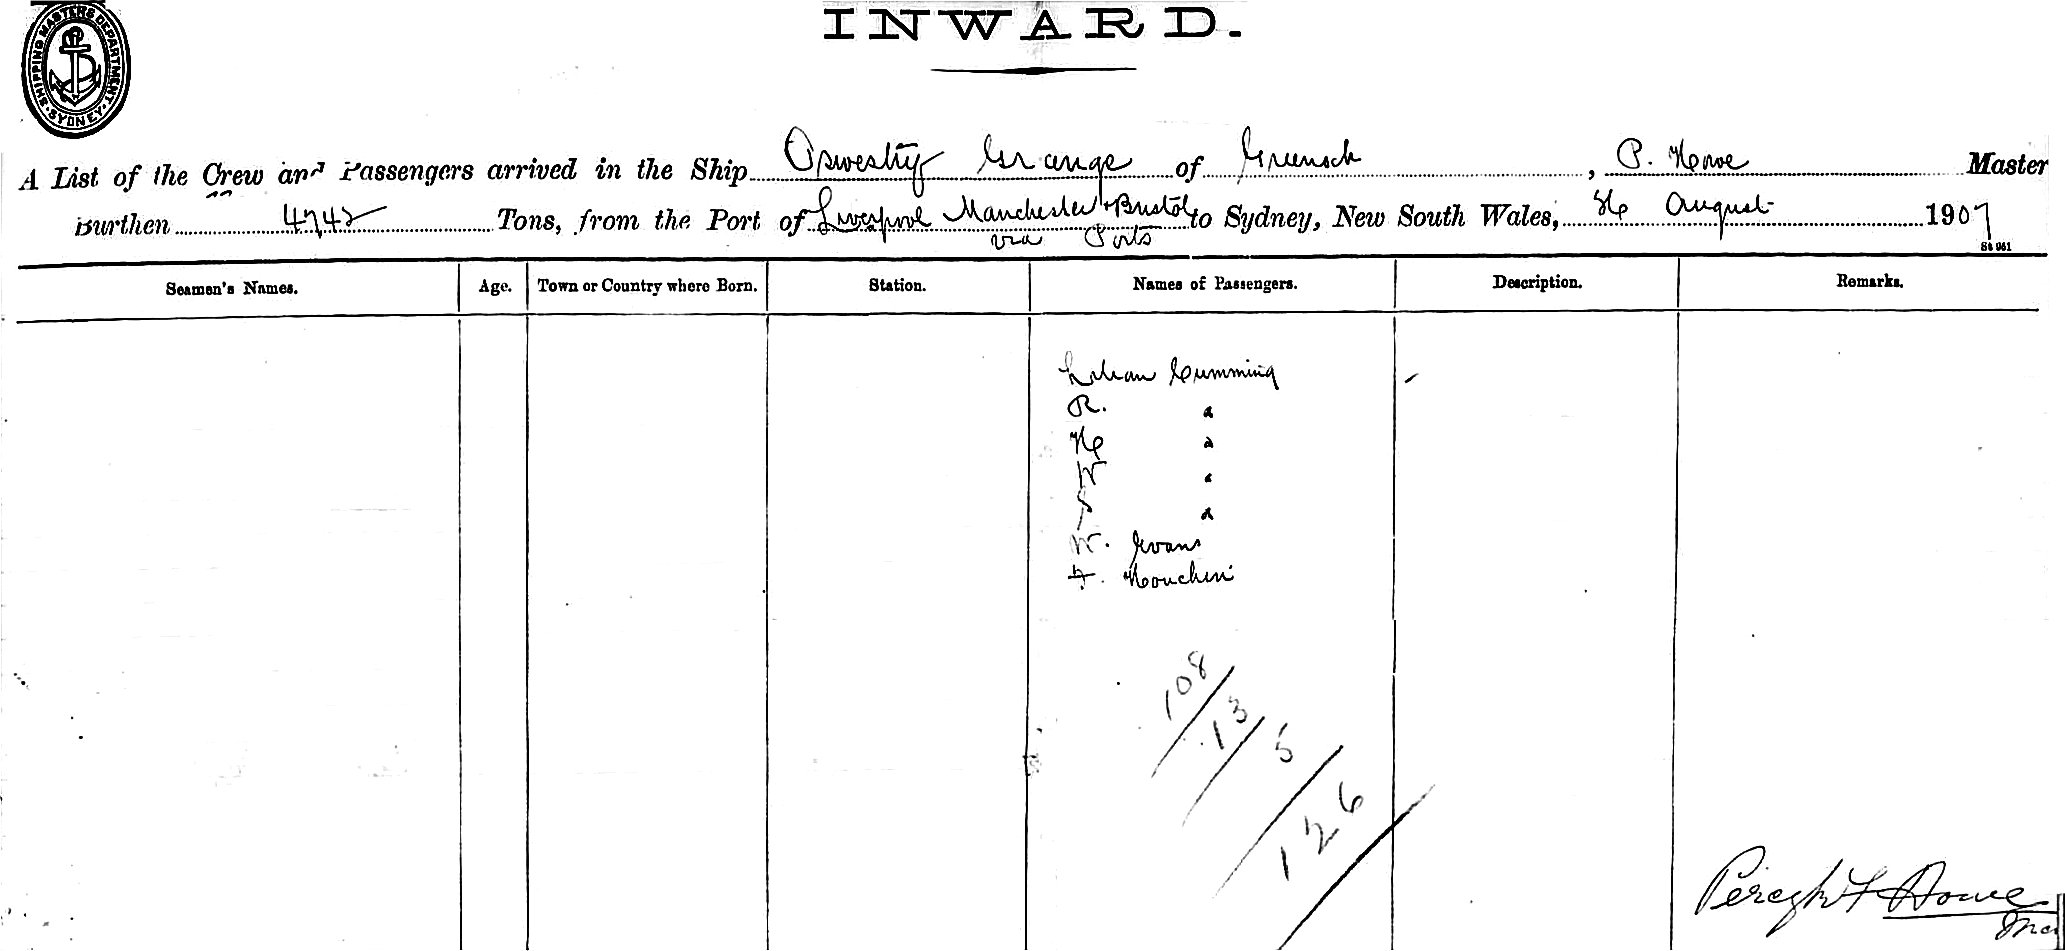 SHIPPING MASTERS DEPARTMENT · SYDNEY ·
INWARD.
A List of the Crew and Passengers arrived in the Ship Oswestry Grange of Greenock, P. Howe Master
Burthen 4742 Tons, from the Port of Liverpool Manchester + Bristol to Sydney, New South Wales, August 1907
via Ports
St 961
Seamen's Names. Age. Town or Country where Born. Station. Names of Passengers. Description. Remarks.
Lilian Cumming
R. "
H "
W "
S "
W. Evans
F. Houchin
108
13
5
126
Howe